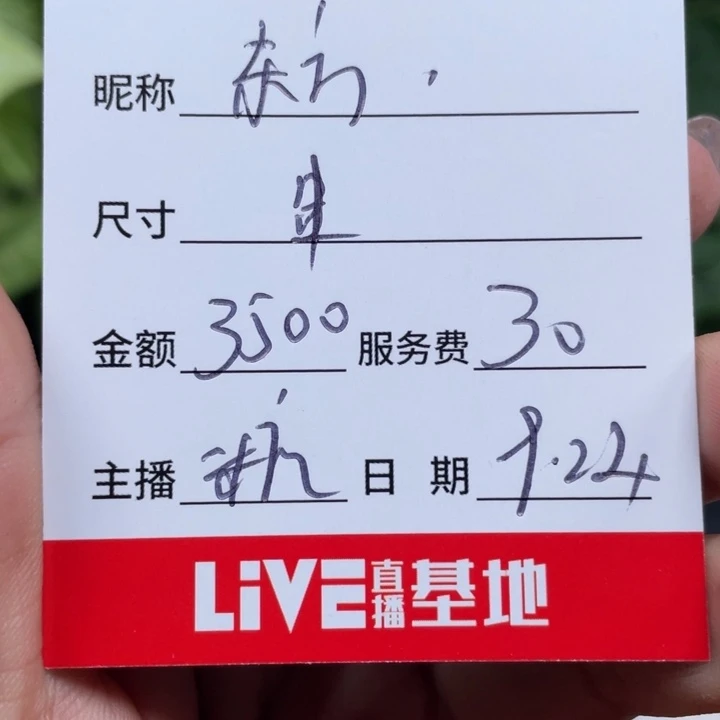 昵称
尺寸
金额 3500 服务费 30
主播 日 期 9.24
LiVE直播基地